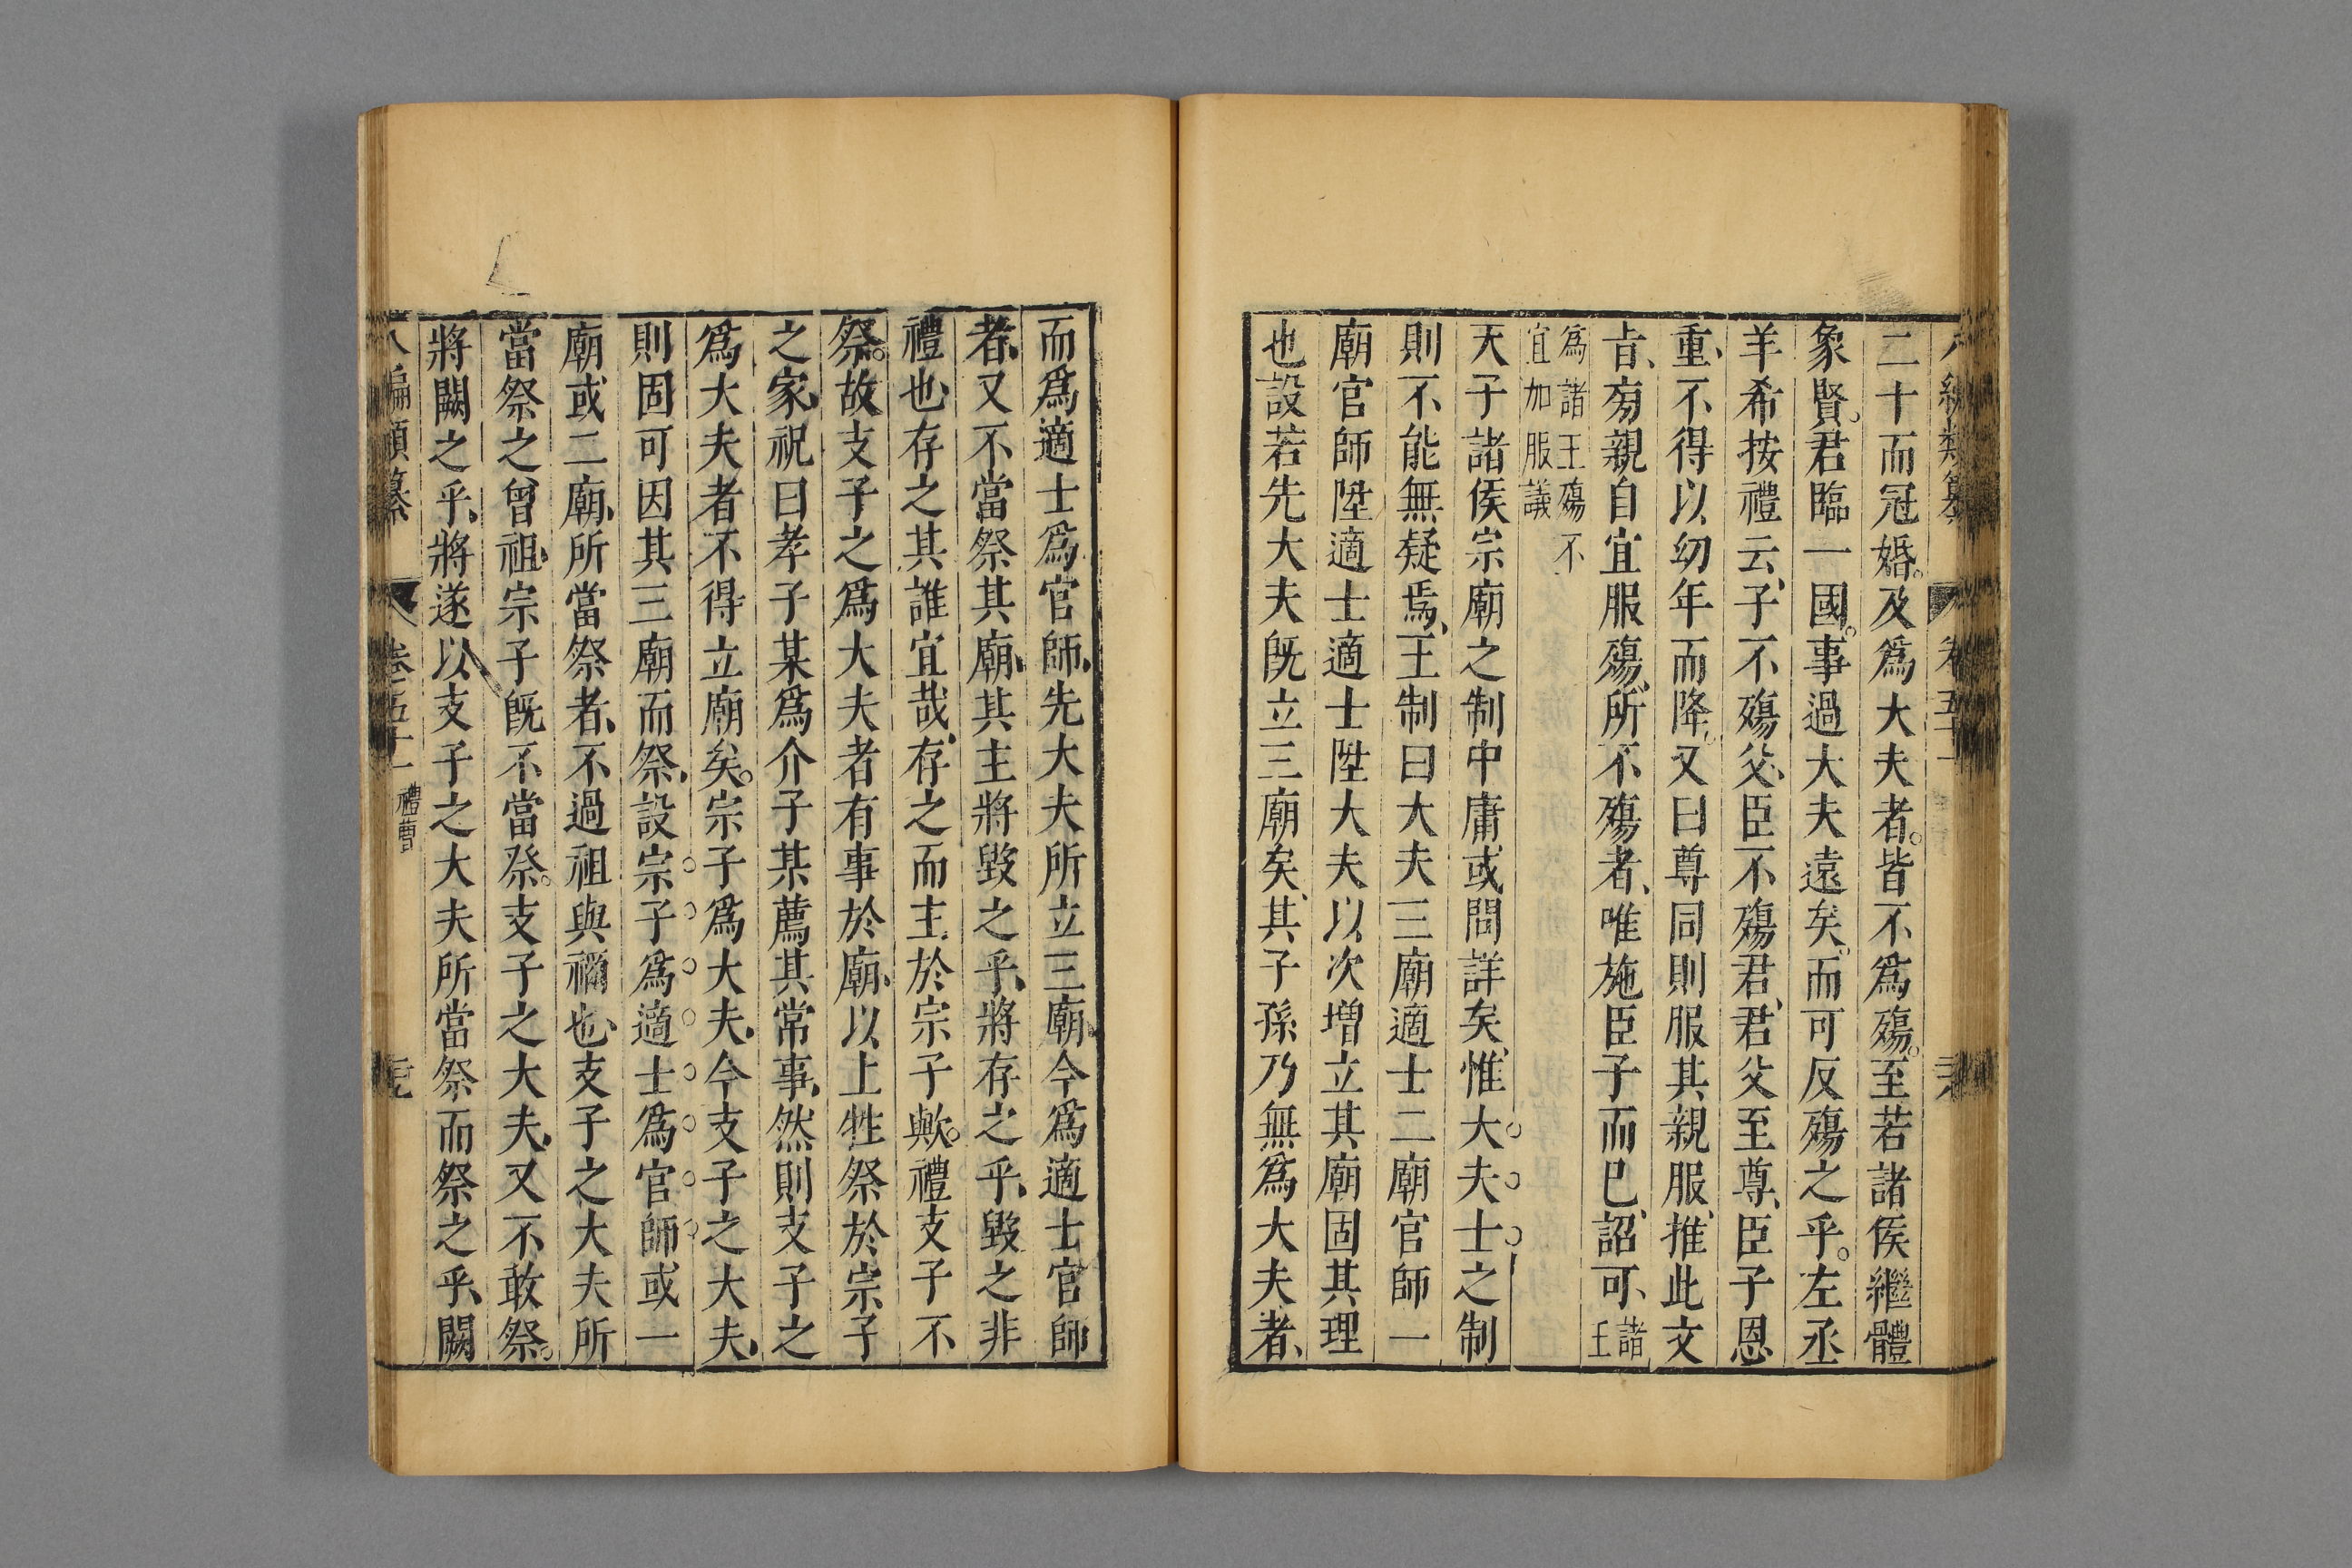 二十而冠婚。及爲大夫者。皆不爲殤。至若諸侯繼體
象賢。君臨一國。事過大夫遠矣。而可反殤之乎。左丞
羊希按禮云、子不殤父、臣不殤君、君父至尊、臣子恩
重、不得以幼年而降。又曰尊同則服其親服、推此文
旨、旁親自宜服殤、所不殤者、唯施臣子而已、詔可、諸王
爲諸王殤不
宜加服議
天子諸侯宗廟之制中庸或問詳矣、惟大夫士之制
則不能無疑焉、王制曰大夫三廟適士二廟官師一
廟官師陞適士適士陞大夫以次增立其廟固其理
也設若先大夫既立三廟矣、其子孫乃無爲大夫者、
而爲適士爲官師、先大夫所立三廟、今爲適士官師
者、又不當祭其廟、其主將毀之乎、將存之乎、毀之非
禮也、存之其誰宜哉、存之而主於宗子歟。禮支子不
祭。故支子之爲大夫者有事於廟、以上牲祭於宗子
之家、祝曰孝子某爲介子某薦其常事、然則支子之
爲大夫者不得立廟矣。宗子爲大夫、今支子之大夫、
則固可因其三廟而祭、設宗子爲適士爲官師或一
廟或二廟、所當祭者、不過祖與禰也、支子之大夫所
當祭之曾祖、宗子既不當祭。支子之大夫、又不敢祭。
將闕之乎、將遂以支子之大夫所當祭而祭之乎、闕
八編類纂 卷五十一 禮曹